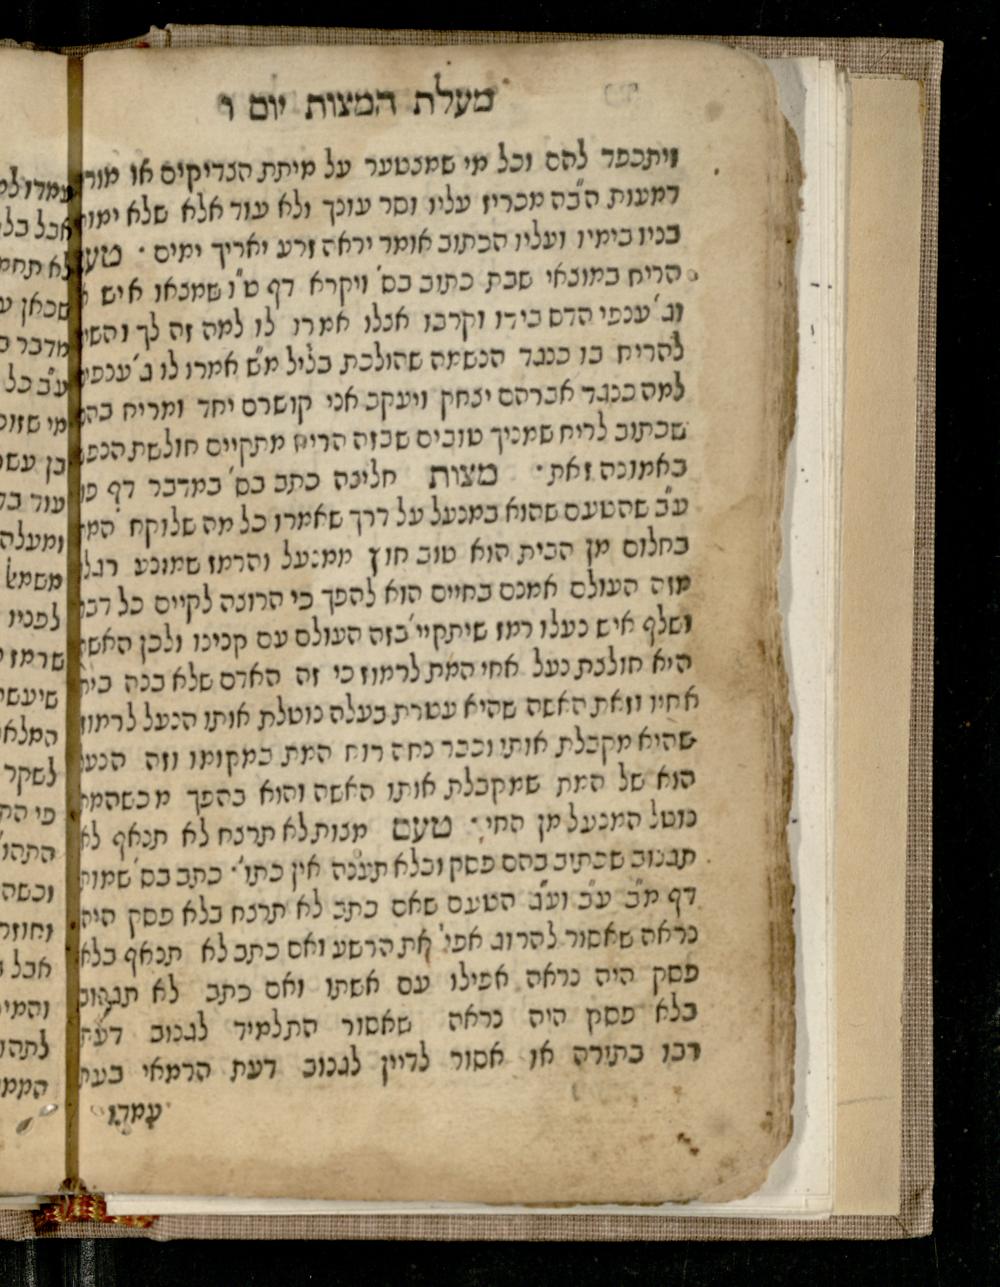 מעלת המצות יום ו
ויתכפר להם וכל מי שמצטער על מיתת הצדיקים או מוריד
דמעות הב״ה מכריז עליו וסר עונך ולא עוד אלא שלא ימותו
בניו בימיו ועליו הכתוב אומר יראה זרע יאריך ימים · טעם
הריח במוצאי שבת כתוב בס׳ ויקרא דף ט״ו שמצאו איש
וג׳ ענפי הדס בידו וקרבו אצלו אמרו לו למה זה לך והשיב
להריח בו כנגד הנשמה שהולכת בליל מ״ש אמרו לו ג׳ ענפים
למה כנגד אברהם יצחק ויעקב אני קושרם יחד ומריח בהם
שכתוב לריח שמניך טובים שבזה הריח מתקיים חולשת הנפש
באמונה זאת · מצות חליצה כתב בס׳ במדבר דף
ע״ב שהטעם שהוא במנעל על דרך שאמרו כל מה שלוקח המת
בחלום מן הבית הוא טוב חוץ ממנעל והרמז שמוצע רגלו
מזה העולם אמנם בחיים הוא להפך כי הרוצה לקיים כל דבר
ושלף איש נעלו רמז שיתקיי׳ בזה העולם עם קנינו ולכן האשה
היא חולצת נעל אחי המת לרמוז כי זה האדם שלא בנה בית
אחיו וזאת האשה שהיא עטרת בעלה נוטלת אותו הנעל לרמוז
שהיא מקבלת אותו וכבר נחה רוח המת במקומו וזה הנעל
הוא של המת שמקבלת אותו האשה והוא בהפך מכשהמת
נוטל המנעל מן החי · טעם מצות לא תרצח לא תנאף לא
תגנוב שכתוב בהם פסק ובלא תענה אין כתו׳ · כתב בס׳ שמות
דף מ״ב ע״ב וע״ג הטעם שאם כתב לא תרצח בלא פסק היה
נראה שאסור להרוג אפי׳ את הרשע ואם כתב לא תנאף בלא
פסק היה נראה אפילו עם אשתו ואם כתב לא תגנוב
בלא פסק היה נראה שאסור התלמיד לגנוב דעת
רבו בתורה או אסור לדיין לגנוב דעת הרמאי בעת
עמדו